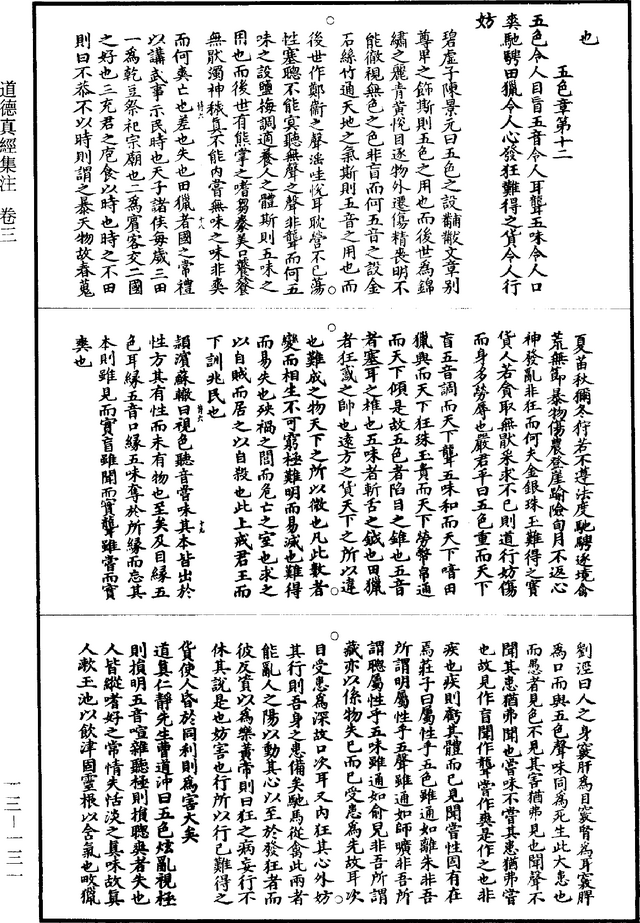 也
五色章第十二
五色令人目盲五音令人耳聾五味令人口
爽馳騁田獵令人心發狂難得之貨令人行
妨
碧虛子陳景元曰五色之設黼黻文章別
尊卑之飾斯則五色之用也而後世為錦
繡之麗青黃悅目逐物外遷傷精喪明不
能徹視無色之色非盲而何五音之設金
石絲竹通天地之氣斯則五音之用也而
後世作鄭衛之聲滛哇悅耳耽營不已蕩
性塞聰不能冥聽無聲之聲非聾而何五
味之設鹽梅調適養人之體斯則五味之
用也而後世有熊掌之嗜芻豢美口饕餮
無猒濁神穢真不能內嘗無味之味非爽
而何爽亡也差也失也田獵者國之常禮
以講武事示民時也天子諸侯每歲三田
一為乾豆祭祀宗廟也二為賔客交二國
之好也三充君之庖食以時也時之不田
則曰不恭不以時則謂之暴天物故春蒐
夏苗秋獮冬狩若不遵法度馳騁逐境禽
荒無節暴物傷農登崖踰險旬月不返心
神發亂非狂而何夫金銀珠玉難得之寶
貨人若貪取無猒采求不已則道行妨傷
而身多勞辱也嚴君平曰五色重而天下
盲五音調而天下聾五味和而天下喑田
獵興而天下狂珠玉貴而天下勞幣帛通
而天下傾是故五色者陷目之錐也五音
者塞耳之椎也五味者斬舌之鉞也田獵
者狂惑之帥也遠方之貨天下之所以違
也難成之物天下之所以微也凡此數者
變而相生不可窮極難明而易滅也難得
而易失也殃禍之閭而危亡之室也求之
以自賊而居之以自殺也此上戒君王而
下訓兆民也
潁濱蘇轍曰視色聽音嘗味其本皆出於
性方其有性而未有物也至矣及目緣五
色耳緣五音口緣五味奪於所緣而忘其
本則雖見而實盲雖聞而實聾雖嘗而實
爽也
劉涇曰人之身竅肝為目竅腎為耳竅脾
為口而與五色聲味同為死生此大患也
而愚者見色不見其害猶弗見也聞聲不
聞其患猶弗聞也嘗味不嘗其患猶弗嘗
也故見作盲聞作聾嘗作爽是作之也非
疾也疾則虧其體而已見聞嘗性固有在
焉莊子曰屬性乎五色雖通如離朱非吾
所謂明屬性乎五聲雖通如師曠非吾所
謂聰屬性乎五味雖通如俞兒非吾所謂
藏亦以係物失已而已受患為先故耳次
目受患為深故口次耳又內狂其心外妨
其行則吾身之患備矣馳馬從禽此兩者
能亂人之陽以動其心以至於發狂者而
彼反實以為樂黃帝則曰狂之病妄行不
休其說是也妨害也行所以行已難得之
貨使人昏於同利則為害大矣
道真仁靜先生曹道沖曰五色炫亂視極
則損明五音喧雜聽極則損聰爽者失也
人皆縱嗜好之常情失恬淡之真味故真
人漱玉池以飲津固靈根以含氣也畋獵
道德真經集注 卷三
一三—一三一